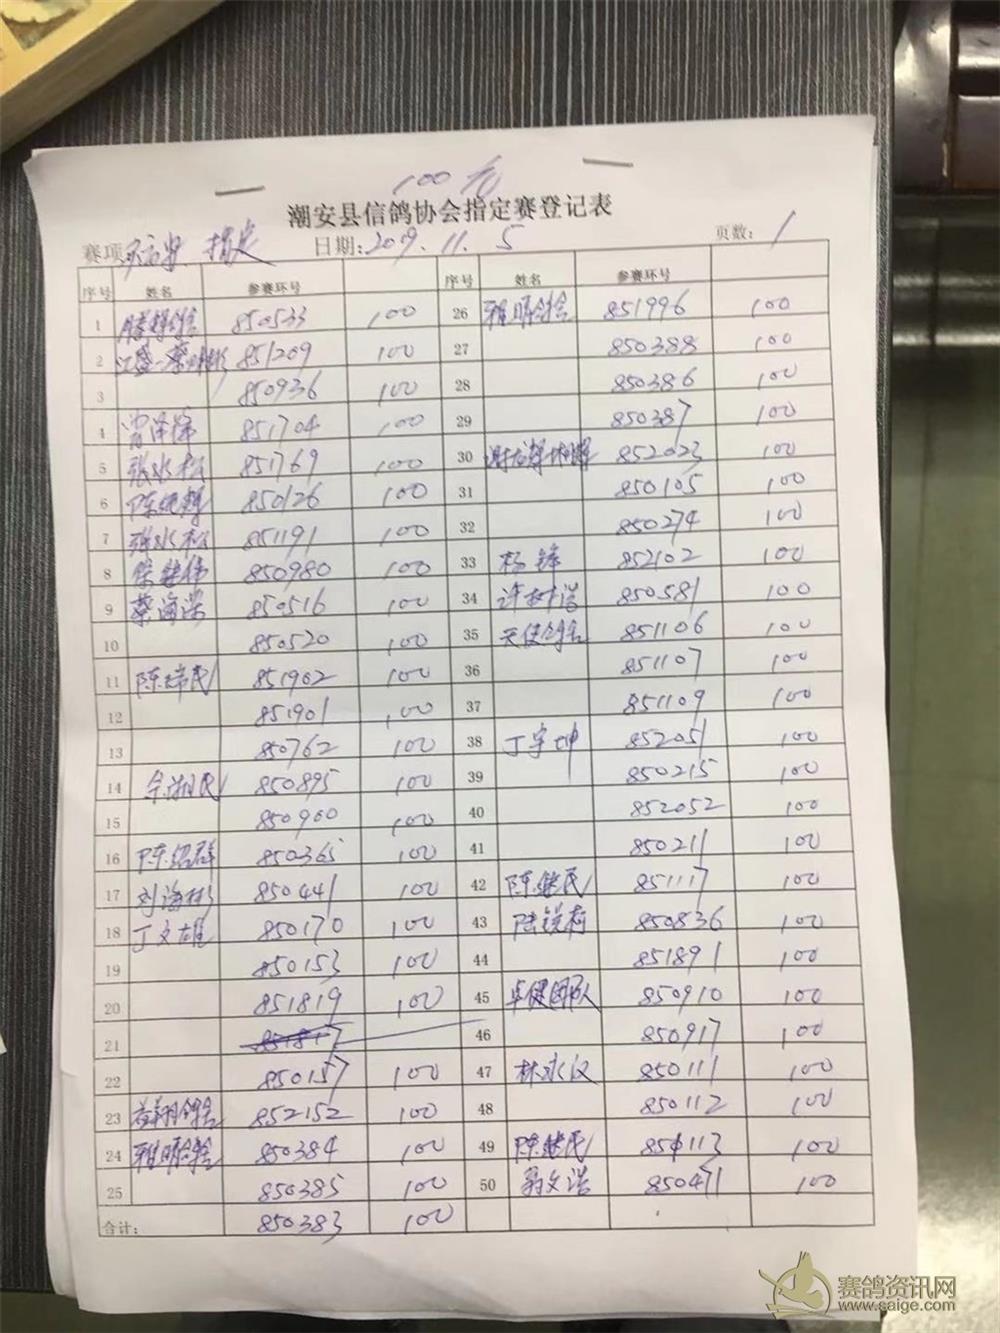 100元
潮安县信鸽协会指定赛登记表
赛项 指定 日期:2019.11.5 页数:1
序号 姓名 参赛环号 序号 姓名 参赛环号
1 850533 100 26 雅晴鸽舍 851996 100
2 851209 100 27 850388 100
3 850936 100 28 850386 100
4 851704 100 29 850387 100
5 张水松 851769 100 30 852023 100
6 850126 100 31 850105 100
7 张水松 851191 100 32 850274 100
8 850980 100 33 杨锋 852102 100
9 蔡海荣 850516 100 34 许树浩 850581 100
10 850520 100 35 天使鸽舍 851106 100
11 陈瑞民 851902 100 36 851107 100
12 851901 100 37 851109 100
13 850762 100 38 丁宇坤 852051 100
14 850895 100 39 850215 100
15 850900 100 40 852052 100
16 陈绍群 850365 100 41 850211 100
17 刘海彬 850441 100 42 陈继民 851117 100
18 丁文雄 850170 100 43 陆锐莉 850836 100
19 850153 100 44 851891 100
20 851819 100 45 卓健团队 850910 100
21 851817 46 850917 100
22 850157 100 47 林水汉 850111 100
23 益翔鸽舍 852152 100 48 850112 100
24 雅晴鸽舍 850384 100 49 陈继民 851113 100
25 850385 100 50 翁文浩 850471 100
合计: 850383 100
赛鸽资讯网
www.saige.com